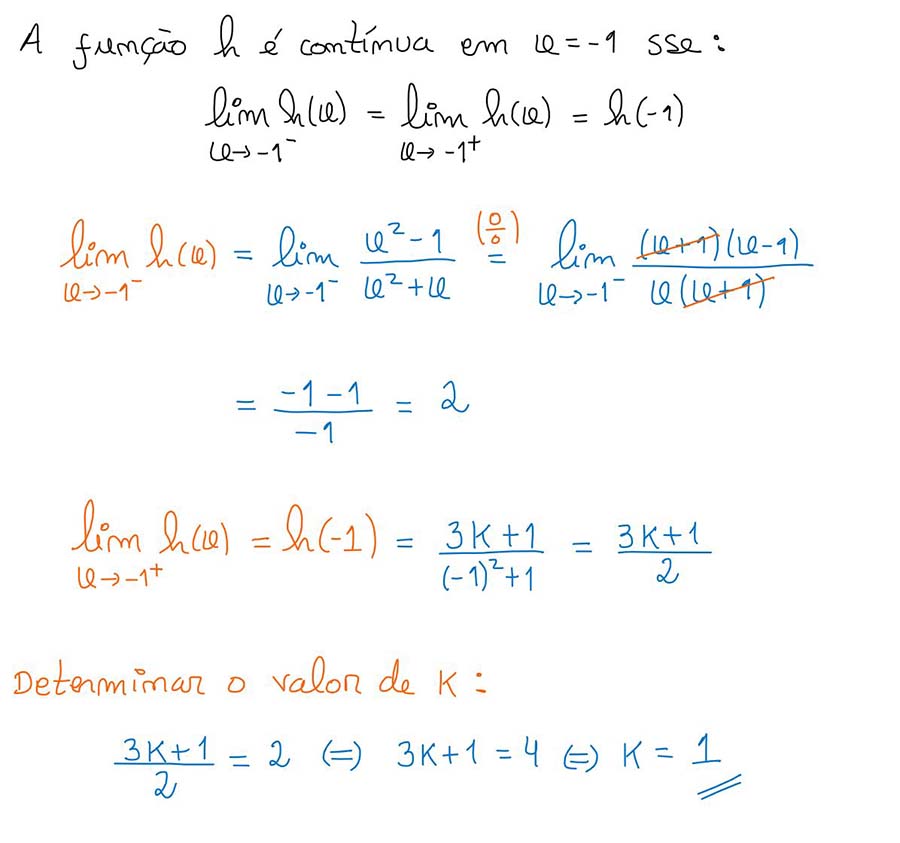 A função h é contínua em x = -1 sse:
lim h(x) = lim h(x) = h(-1)
x→-1⁻ x→-1⁺
lim h(x) = lim (x² - 1)/(x² + x) (0/0)= lim ((x+1)(x-1))/(x(x+1))
x→-1⁻ x→-1⁻ x→-1⁻
= (-1-1)/(-1) = 2
lim h(x) = h(-1) = (3k+1)/((-1)²+1) = (3k+1)/2
x→-1⁺
Determinar o valor de k:
(3k+1)/2 = 2 (=) 3k+1 = 4 (=) k = 1